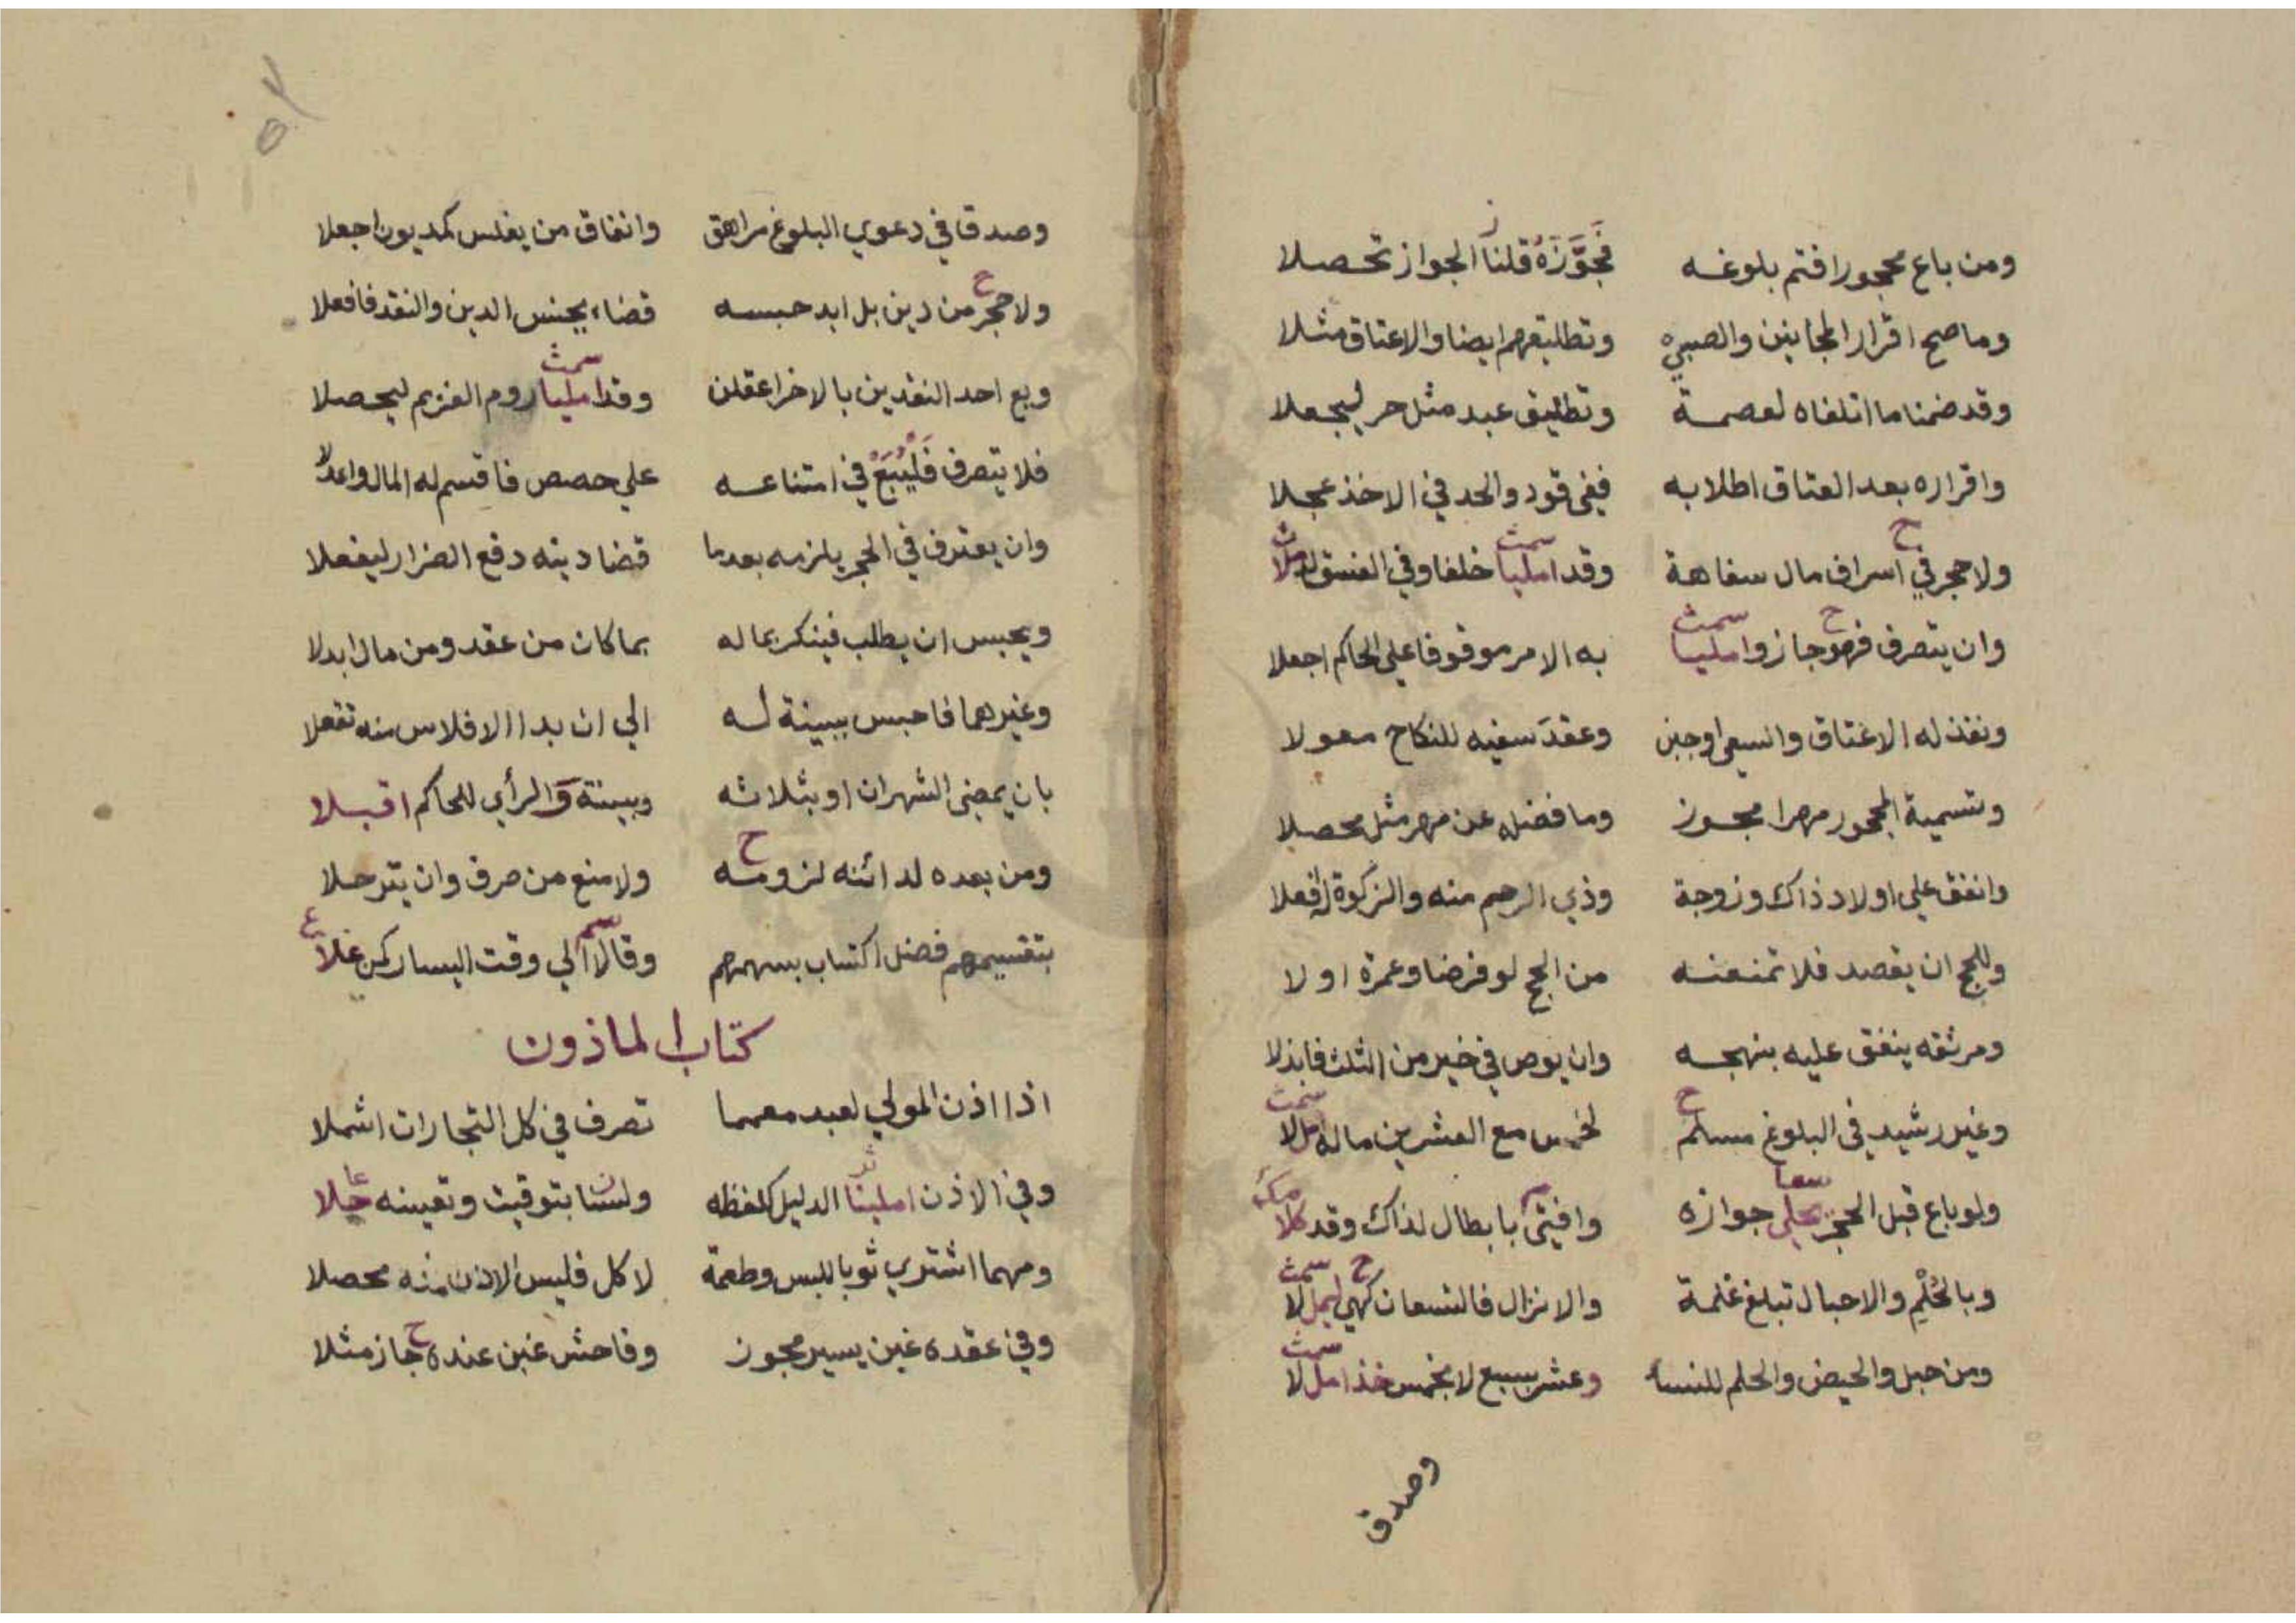 ومن باع محجورا فتم بلوغه فجوّزه قلنا الجواز تحصلا
وما صح اقرار المجانين والصبي وتطليقهم ايضا والاعتاق مثلا
وقد ضمنا ما اتلفاه لعصمة وتطليق عبد مثل حر ليجعلا
واقراره بعد العتاق اطلابه ففي قود والحد في الاخذ عجلا
ولا حجر في اسراف مال سفاهة وقد امليا خلفا وفي الفسق
وان يتصرف فهو جاز وامليا به الامر موقوفا على الحاكم اجعلا
ونفذ له الاعتاق والسعي اوجبن وعقد سفيه للنكاح معولا
وتسمية المحجور مهرا مجوز وما فضله عن مهر مثل محصلا
وانفق علي اولاد ذاك وزوجة وذي الرحم منه والزكوة له افعلا
وللحج ان يقصد فلا تمنعنه من الحج لو فرضا وعمرة اولا
ومر ثقه ينفق عليه بنهجه وان يوص في خير من الثلث فابذلا
وغير رشيد في البلوغ مسلم لخمس مع العشرين ماله امللا
ولو باع قبل الحجر يحلي جوازه وافيتى بابطال لذاك وقد كلا
وبالحُلْمِ والاحبال تبلغ غلمة والانزال فالتسعان كهي ليمللا
ومن حبل والحيض والحلم للنسا وعشر بسبع لا بخمس خذ امللا
وصدق
وصدقا في دعوي البلوغ مراهق وانفاق من يفلس كمديون اجعلا
ولا حجر من دين بل ابد حبسه قضاء بجنس الدين والنقد فافعلا
وبع احد النقدين بالاخر اعقلن وقد امليا روم الغريم ليحصلا
فلا يتصرف فليبع في امتناعه علي حصص فاقسم له المال واعدلا
وان يعترف في الحجر يلزمه بعدما قضا دينه دفع الضرار ليفعلا
ويحبس ان يطلب فينكر بماله بما كان من عقد ومن مال ابدلا
وغيرهما فاحبس ببينة له الي ان بدا الافلاس منه تفعلا
بان يمضي الشهران او بثلاثه وبينة والرأي للحاكم اقبلا
ومن بعده لدائنه لزومه ولا منع من صرف وان يترحلا
بتقسيمهم فضل اكتساب بسهمهم وقالا الي وقت اليسار كمن علا
كتاب الماذون
اذا اذن المولي لعبد معمما تصرف في كل التجارات اشملا
وفي الاذن املينا الدليل كلفظه ولسنا بتوقيت وتعيينه حلا
ومهما اشتري ثوبا للبس وطعمة لاكل فليس الاذن منه محصلا
وفي عقده غبن يسير مجوز وفاحش غبن عنده جاز مثلا